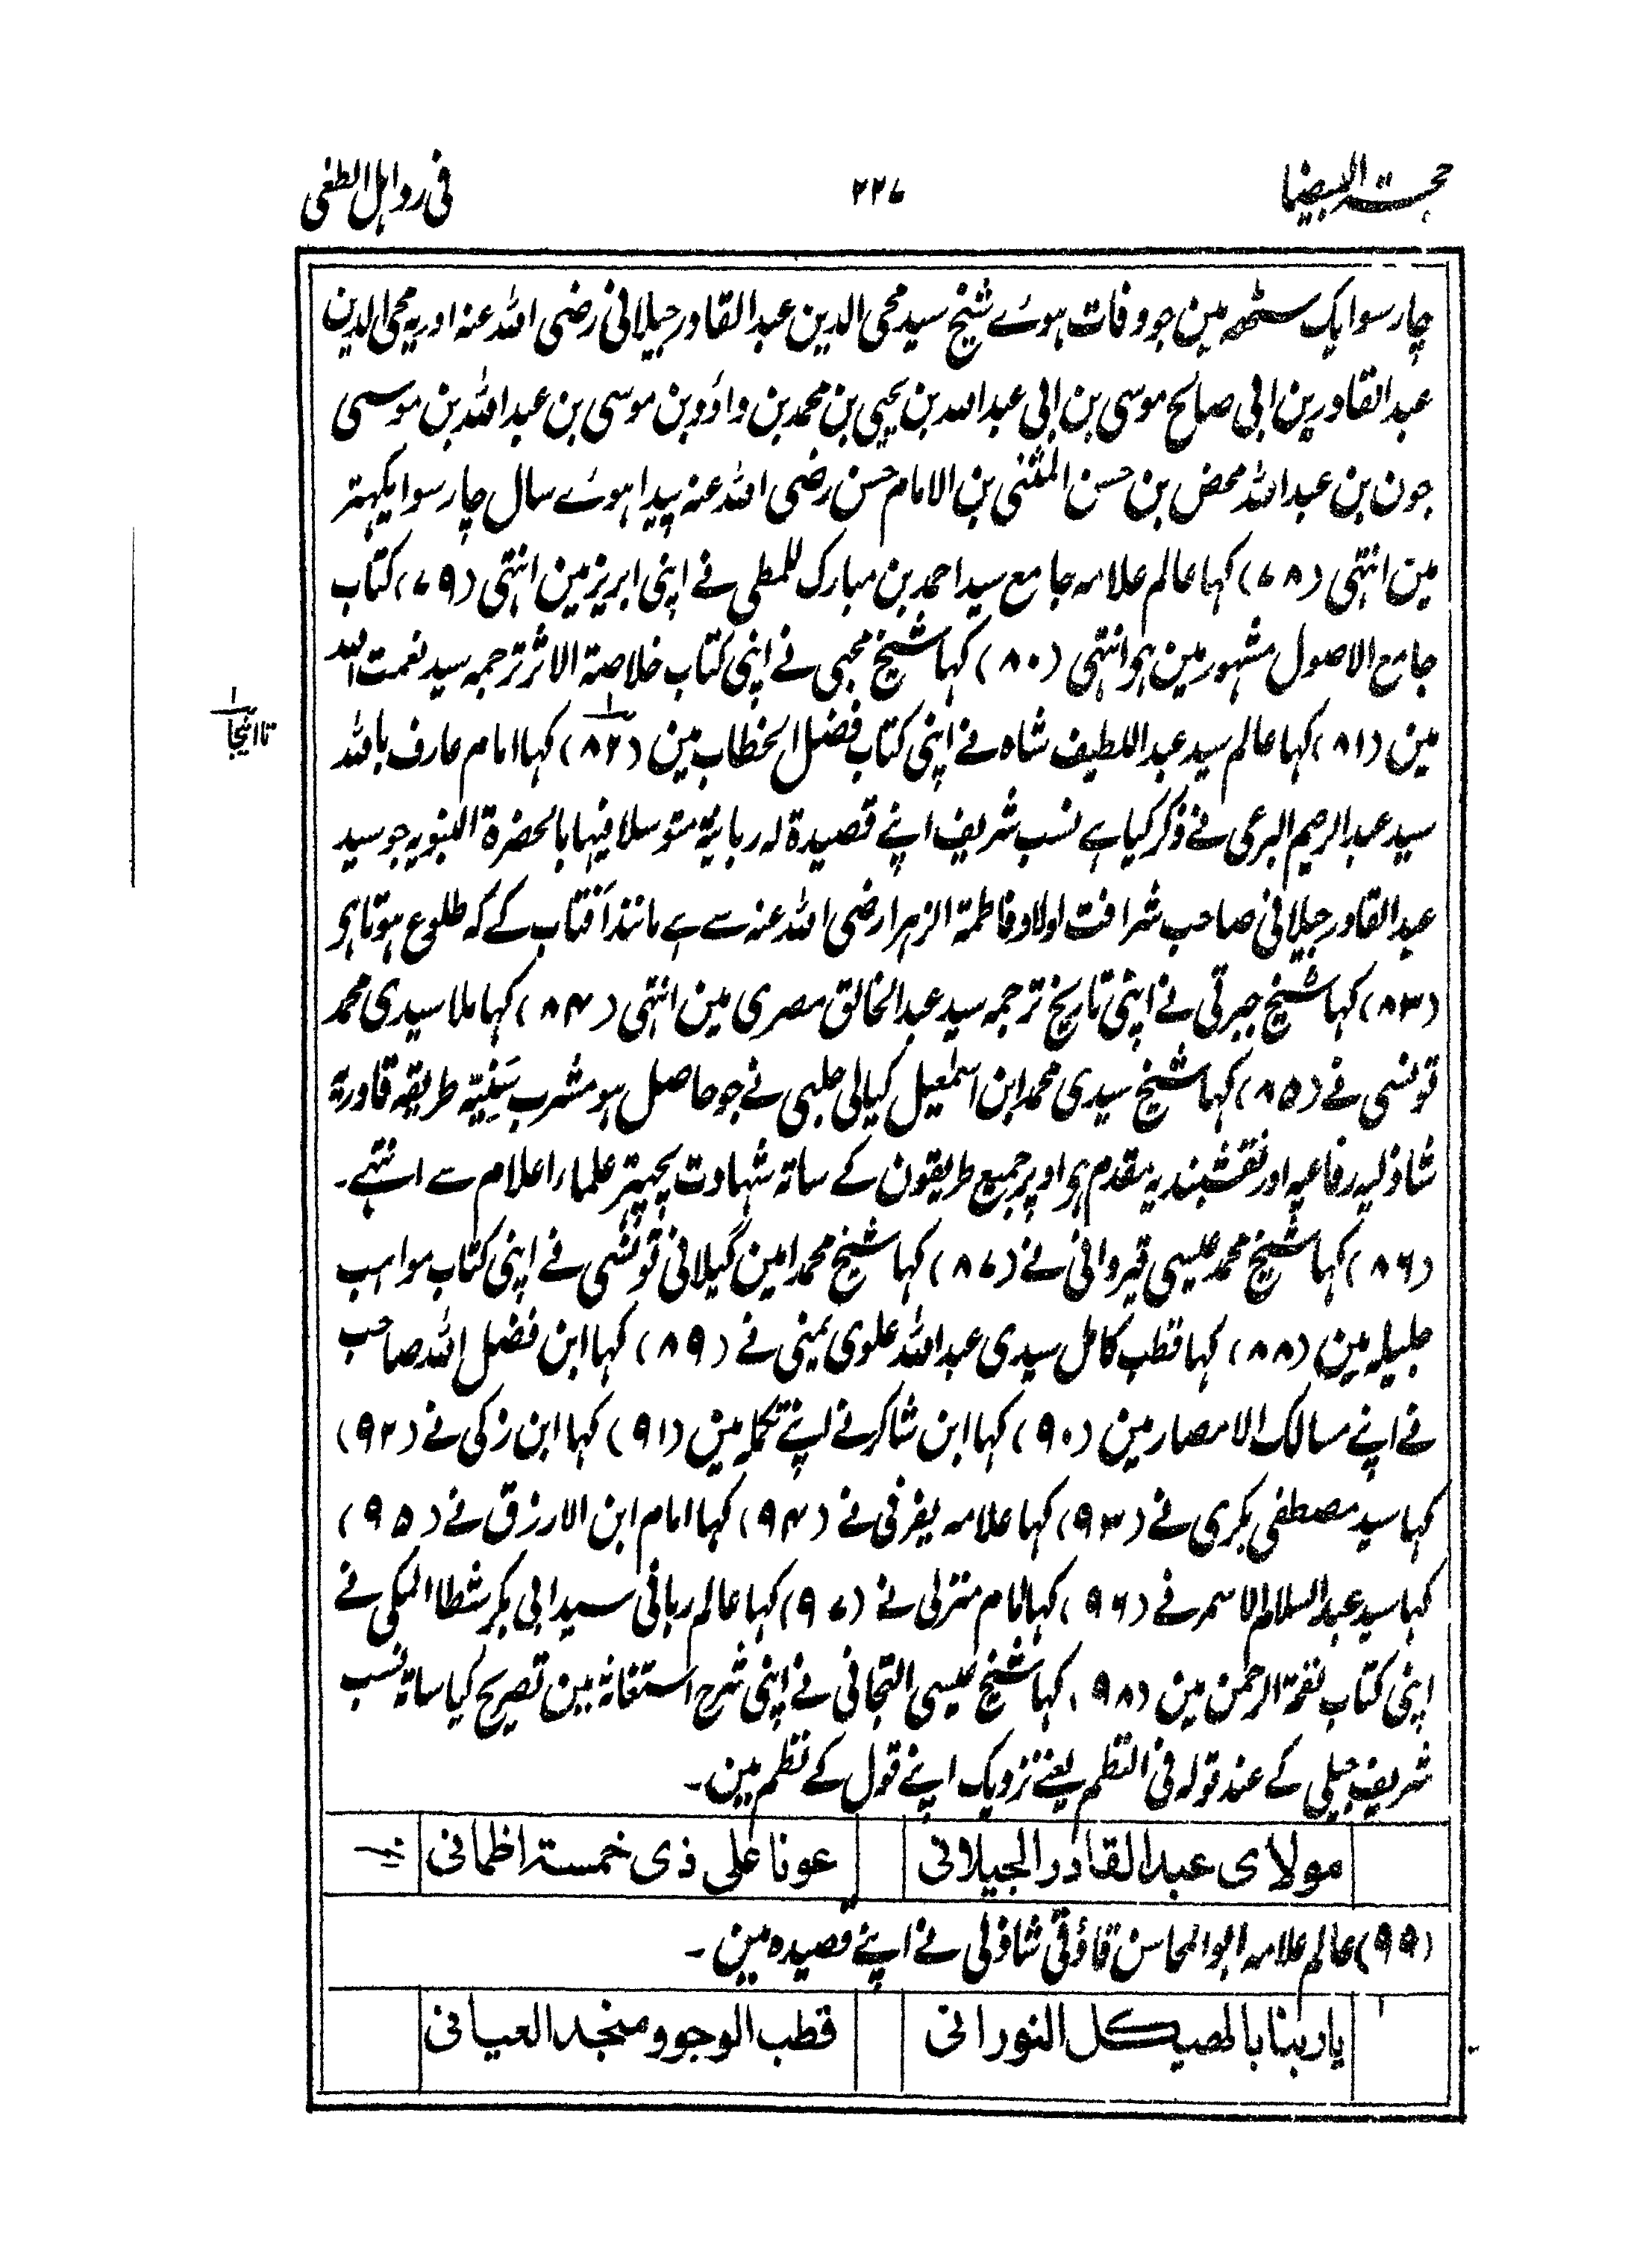 حجتہ البیضا ۲۲۷ فی رد اہل الطغی
چار سو ایک سٹھہ مین جو وفات ہوئے شیخ سید محی الدین عبد القادر جیلانی رضی اللہ عنہ اور یہ محی الدین
عبد القادر بن ابی صالح موسی بن ابی عبد اللہ بن یحیی بن محمد بن داؤد بن موسی بن عبد اللہ بن موسی
جون بن عبد اللہ محض بن حسن المثنی بن الامام حسن رضی اللہ عنہ پیدا ہوئے سال چار سو ایکہتر
مین انتہی (۷۸) کہا عالم علامہ جامع سید احمد بن مبارک للمطی نے اپنی ابریز مین انتہی (۷۹) کتاب
جامع الاصول مشہور مین ہو انتہی (۸۰) کہا شیخ محبی نے اپنی کتاب خلاصۃ الاثر ترجمہ سید نعمت اللہ
مین (۸۱) کہا عالم سید عبد اللطیف شاہ نے اپنی کتاب فضل الخطاب مین (۸۲) کہا امام عارف باللہ
تا اینجا
سید عبد الرحیم البرعی نے ذکر کیا ہے نسب شریف اپنے قصیدۃ لہ ربانیۃ متوسلا فیہا بالحضرۃ النبویہ جو سید
عبد القادر جیلانی صاحب شرافت اولاد فاطمۃ الزہرا رضی اللہ عنہ سے ہے مانند آفتاب کے کہ طلوع ہوتا ہو
(۸۳) کہا شیخ جبرتی نے اپنی تاریخ ترجمہ سید عبد الخالق مصری مین انتہی (۸۴) کہا ملا سیدی محمد
تونسی نے (۸۵) کہا شیخ سیدی محمد ابن اسمٰعیل کیالی حلبی نے جو حاصل ہو مشرب سَنِیَّہ طریقہ قادریۃ
شاذلیہ رفاعیہ اور نقشبندیہ مقدم ہو اوپر جمیع طریقون کے ساتہ شہادت پچہتر علماء اعلام سے انتہے۔
(۸۶) کہا شیخ محمد عیسی قیروانی نے (۸۷) کہا شیخ محمد امین گیلانی تونسی نے اپنی کتاب مواہب
جلیلہ مین (۸۸) کہا قطب کامل سیدی عبد اللہ علوی یمینی نے (۸۹) کہا ابن فضل اللہ صاحب
نے اپنے مسالک الامصار مین (۹۰) کہا ابن شاکر نے اپنے تکملہ مین (۹۱) کہا ابن زکی نے (۹۲)
کہا سید مصطفی بکری نے (۹۳) کہا علامہ یفرفی نے (۹۴) کہا امام ابن الارزق نے (۹۵)
کہا سید عبد السلام الاسمر نے (۹۶) کہا امام منزلی نے (۹۷) کہا عالم ربانی سید ابی بکر شطا المکی نے
اپنی کتاب نفحۃ الرحمن مین (۹۸) کہا شیخ عیسی التجانی نے اپنی شرح استغاثہ مین تصریح کیا ساتہ نسب
شریف جیلی کے عند قولہ فی النظم یعنے نزدیک اپنے قول کے نظم مین۔
مولای عبد القادر الجیلانی عونا علی ذی خمستہ اظمانی
(۹۹) عالم علامہ ابو المحاسن قاؤقی شاذلی نے اپنے قصیدہ مین۔
یا ربنا بالھیکل النورانی قطب الوجود ومنجد العیانی